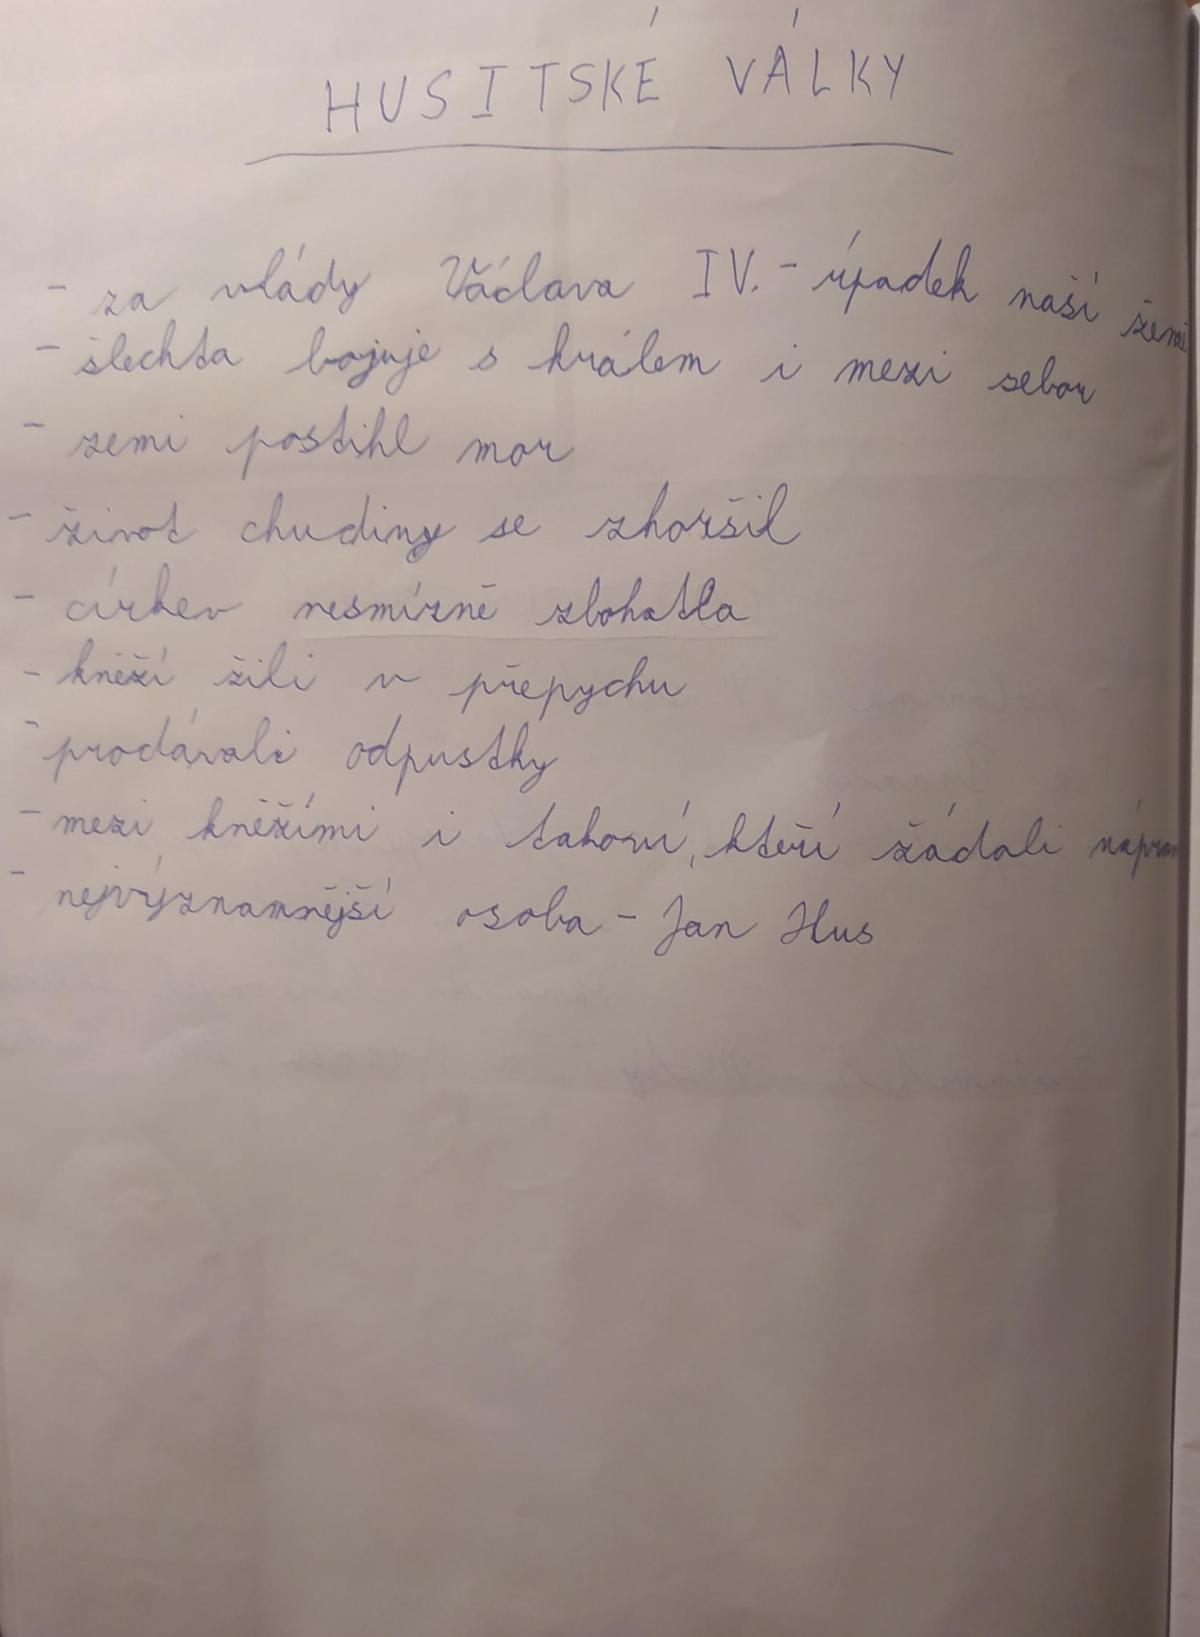 HUSITSKÉ VÁLKY
- za vlády Václava IV. - úpadek naší země
- šlechta bojuje s králem i mezi sebou
- zemi postihl mor
- život chudiny se zhoršil
- církev nesmírně zbohatla
- kněží žili v přepychu
- prodávali odpustky
- mezi kněžími i takoví, kteří žádali náprav
- nejvýznamnější osoba - Jan Hus